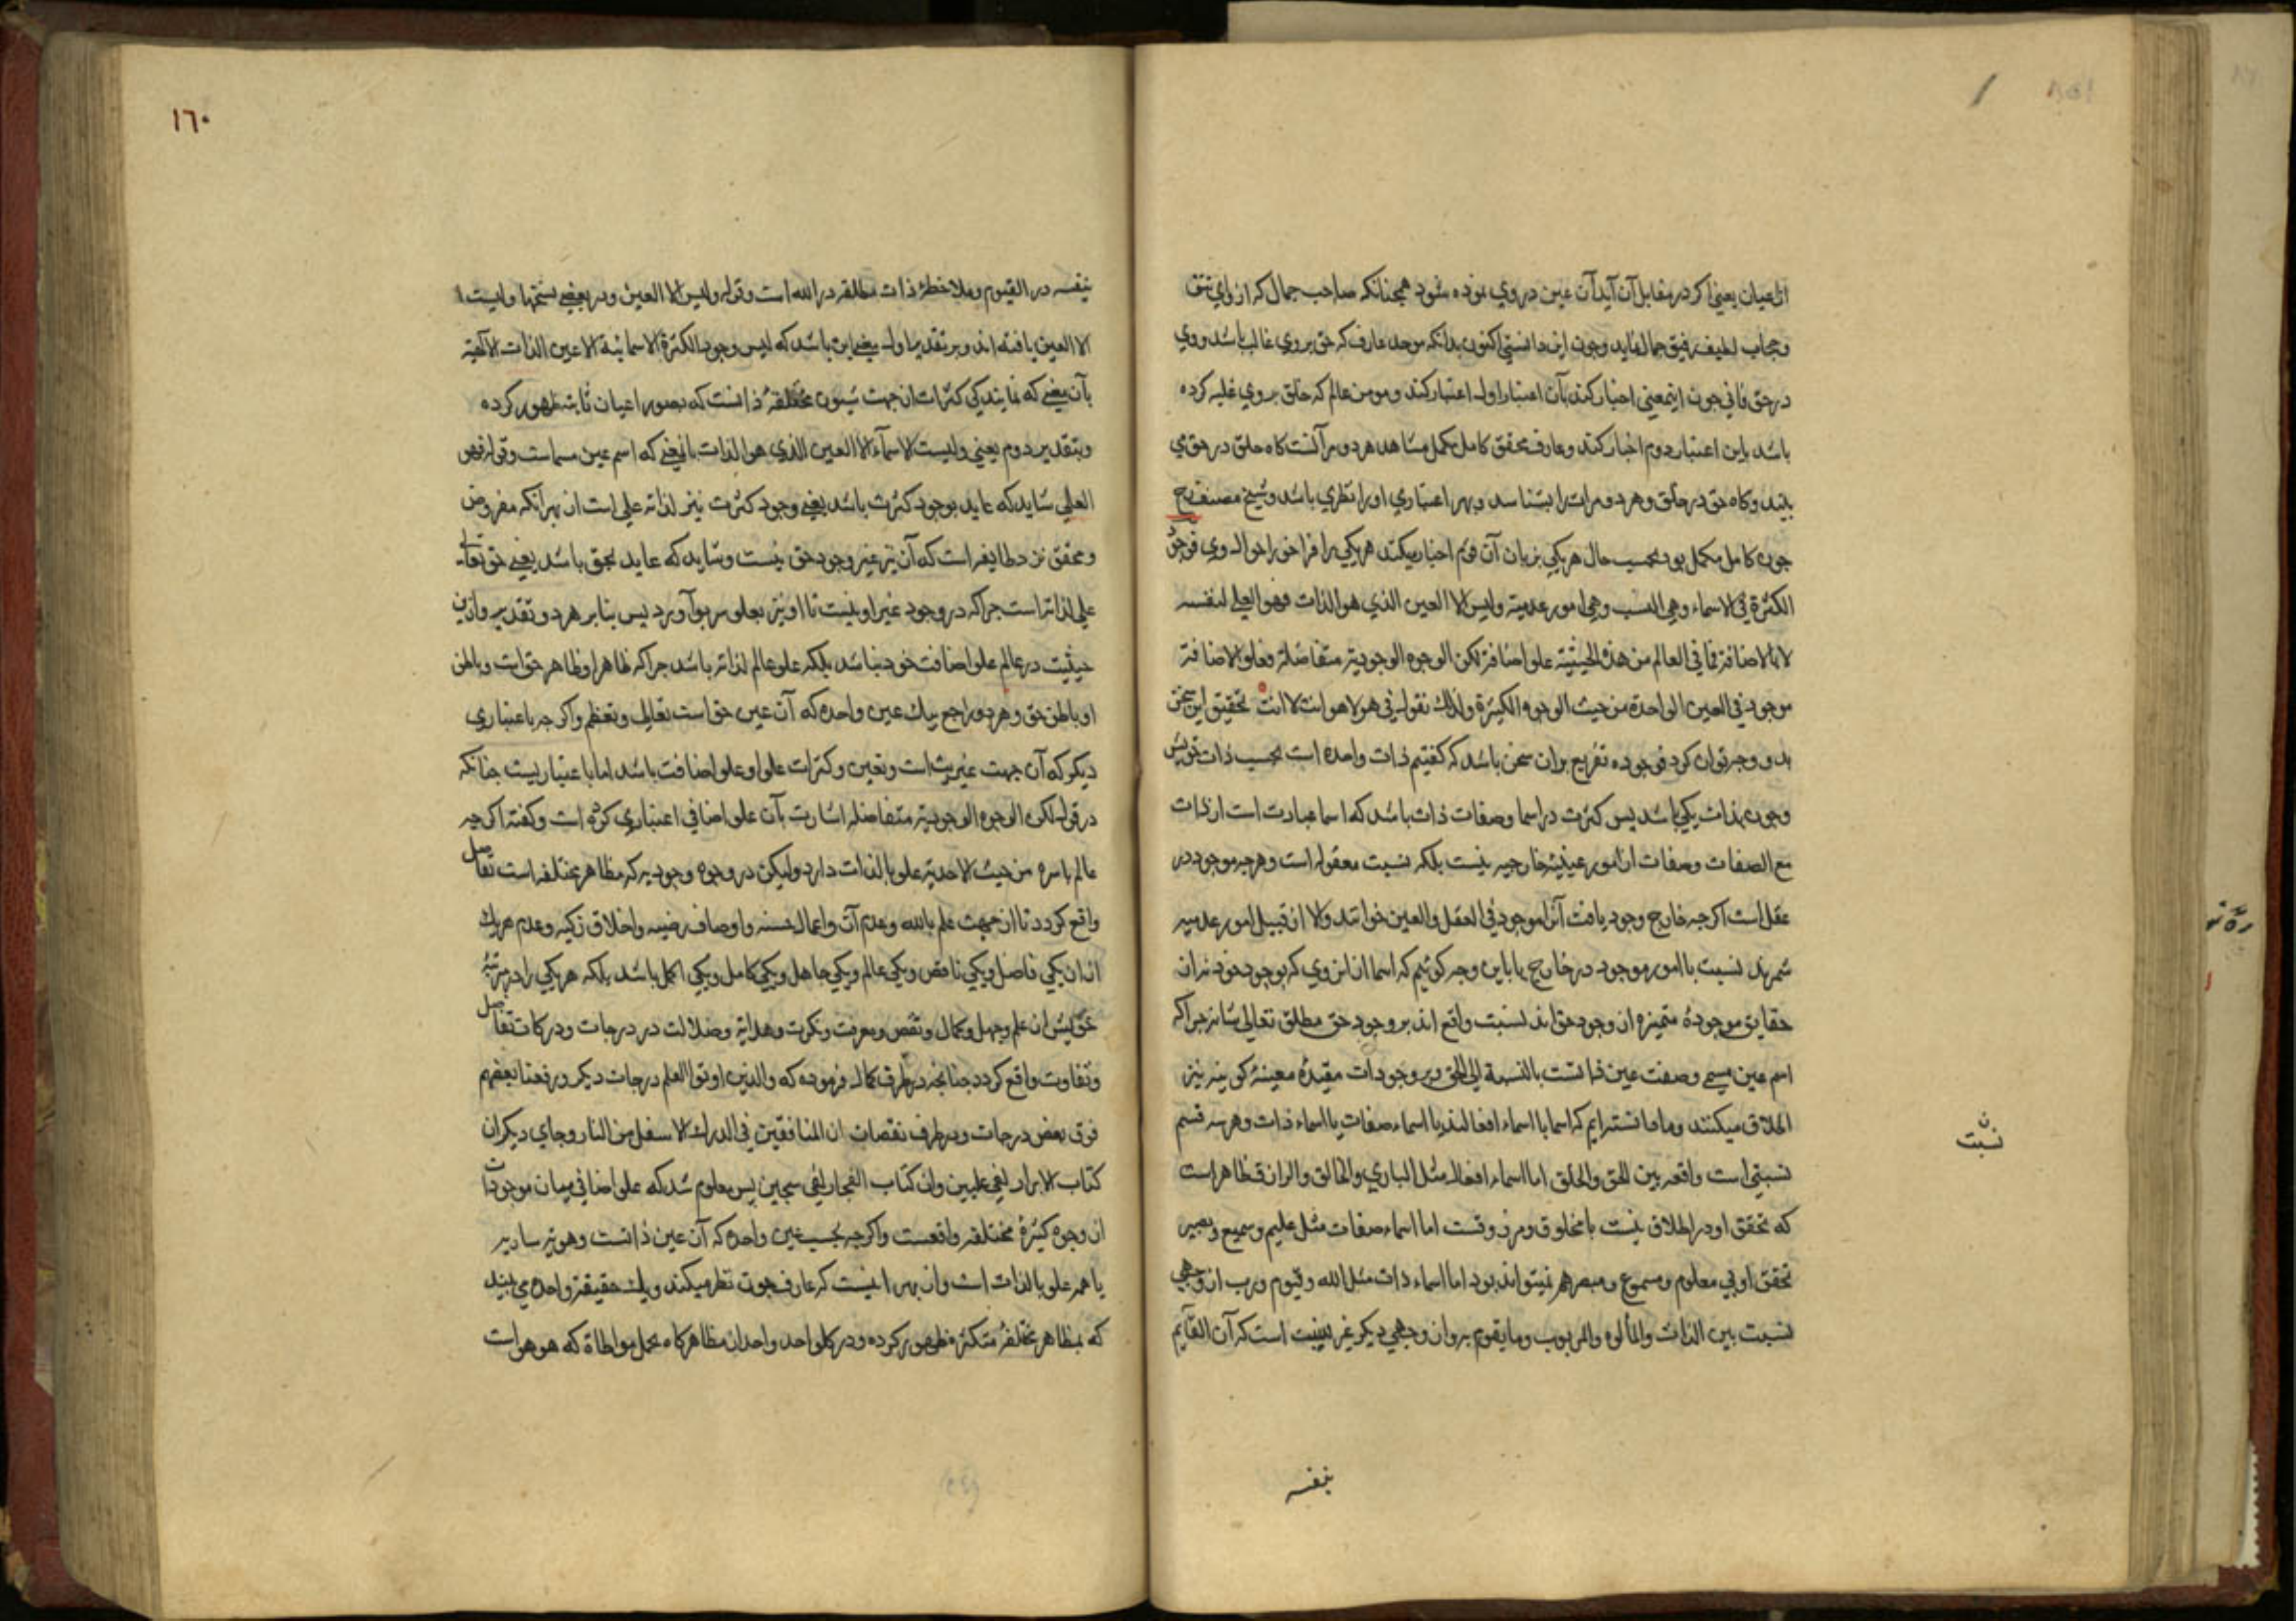 از اعیان یعنی اکر در مقابل آن آید آن عین در وی نموده شود همچنانکه صاحب جمال که از ورای تتق
وحجاب لطیف رقیق جمال نماید وچون این دانستی اکنون بدانکه موحد عارف که حق بروی غالب باشد و وی
در حق فانی چون ازین معنی اخبار کند بآن اعتبار اول اعتبار کند ومومن عالم که خلق بروی غلبه کرده
باشد باین اعتبار دوم اخبار کند وعارف محقق کامل مکمل مشاهد هر دو مرآتست کاه خلق در حق می
بیند وکاه حق در خلق وهر دو مرات را بشناسد وبهر اعتباری او را نظری باشد وشیخ مصنف رح
چون کامل مکمل بود بحسب حال هر یکی بزبان آن قوم اخبار میکند هر یکی را فراخور احوال وی فوجود
الکثرة فی الاسماء وهی النسب وهی امور عدمیة ولیس الا العین الذی هو الذات فهو العلی لنفسه
لا بالاضافة فما فی العالم من هذه الحیثیة علو اضافة لکن الوجوه الوجودیة متفاضلة فعلو الاضافة
موجود فی العین الواحدة من حیث الوجوه الکثیرة ولذلک نقول فی هو لا هو انت لا انت تحقیق این سخن
بدو وجه توان کرد فوجوده تفریع بران سخن باشد که کفتیم ذات واحده است بحسب ذات خویش
وچون بذات یکی باشد پس کثرت در اسما وصفات ذات باشد که اسما عبارت است از ذات
مع الصفات وصفات از امور عینیه خارجیه نیست بلکه نسبت معقوله است وهر چه موجود در
عقل است اکر چه خارج وجود یافت آنرا موجود فی العقل والعین خوانند والا از قبیل امور عدمیه
شمرند نسبت با امور موجود در خارج یا باین وجه کوئیم که اسما از ان روی که بوجود خود نه ان
حقایق موجودهٔ متمیزه از وجود حق اند نسبت واقع اند بر وجود حق مطلق تعالی شانه چرا که
اسم عین مسمی وصفت عین ذاتست بالنسبة الی الحق وبر وجودات مقیدهٔ معینهٔ کونیه نیز
اطلاق میکنند وما دانسته ایم که اسما یا اسماء افعالند یا اسماء صفات یا اسماء ذات وهر سه قسم
نسبتی است واقعه بین الحق والخلق اما اسماء افعال مثل الباری والخالق والرازق ظاهر است
که تحقق او در اطلاق نیست با مخلوق ومرزوقست اما اسماء صفات مثل علیم وسمیع وبصیر
تحقق او بی معلوم ومسموع ومبصر هم نمیتواند بود اما اسماء ذات مثل الله وقیوم ورب از وجهی
نسبت بین الذات والمألوه والمربوب وما یقوم به وازن وجهی دیکر غیر نسبت است که آن القایم
نسبت
بنفسه
١٦٠
بنفسه در القیوم وملاحظهٔ ذات مطلقه در الله است وقوله ولیس الا العین ودر بعضی نسخها ولیست
الا العین یافته اند وبر تقدیر اول یعنی این باشد که لیس وجود الکثرة الاسمائیة الا عین الذات الالهیة
بآن معنی که نمایندکی کثرات از جهت شئون مختلفهٔ ذاتست که بصور اعیان ثابته ظهور کرده
وبتقدیر دوم یعنی ولیست الاسمآء الا العین الذی هو الذات بآنمعنی که اسم عین مسماست وقوله فهو
العلی شاید که عاید بوجود کثرت باشد یعنی وجود کثرت نیز لذاته علی است از بهر انکه مفروض
ومحقق نزد طایفه است که آن نیز غیر وجود حق نیست وشاید که عاید بحق باشد یعنی حق تعالی
علی لذاته است چرا که در وجود غیر او نیست تا او نیز بعلو برو آورد پس بنا بر هر دو تقدیر وازین
حیثیت در عالم علو اضافت خود نباشد بلکه علو عالم لذاته باشد چرا که ظاهر او ظاهر حق است وباطن
او باطن حق وهر دو راجع بیک عین واحده که آن عین حق است تعالی وتعظم واکر چه باعتباری
دیکر که آن جهت غیریت است وتعین وکثرات علو او علو اضافت باشد اما با عتباریست چنانکه
در قوله لکن الوجوه الوجودیة متفاضله اشارت بآن علو اضافی اعتباری کرده است وکفته اکر چه
عالم باسره من حیث الاحدیة علو بالذات دارد ولیکن در وجوه وجودیه که مظاهر مختلفه است تفاضل
واقع کردد تا از جهت علم بالله وعدم آن واعمال حسنه واوصاف رضیه واخلاق زکیه وعدم هر یک
از ان یکی فاضل ویکی ناقص ویکی عالم ویکی جاهل ویکی کامل ویکی اکمل باشد بلکه هر یکی را در مرتبهٔ
خویش از علم وجهل وکمال ونقص ومعرفت ونکرت وهدایة وضلالت در درجات ودرکات تفاضل
وتفاوت واقع کردد چنانچه در طرف کمال فرموده که والذین اوتوا العلم درجات دیکر ورفعنا بعضهم
فوق بعض درجات ودر طرف نقصان ان المنافقین فی الدرک الاسفل من النار وجای دیکر ان
کتاب الابرار لفی علیین وان کتاب الفجار لفی سجین پس معلوم شد که علو اضافی میان موجودات
از وجوه کثیرهٔ مختلفه واقعست واکر چه بحسب عین واحده که آن عین ذاتست وهویة ساریه
با همه علو بالذات است وازن بهر اینست که عارف چون نظر میکند ویک حقیقة واحده می بیند
که بمظاهر مختلفهٔ متکثره ظهور کرده ودر کل واحد واحد از مظاهر کاه بحمل مواطاة که هو هو است